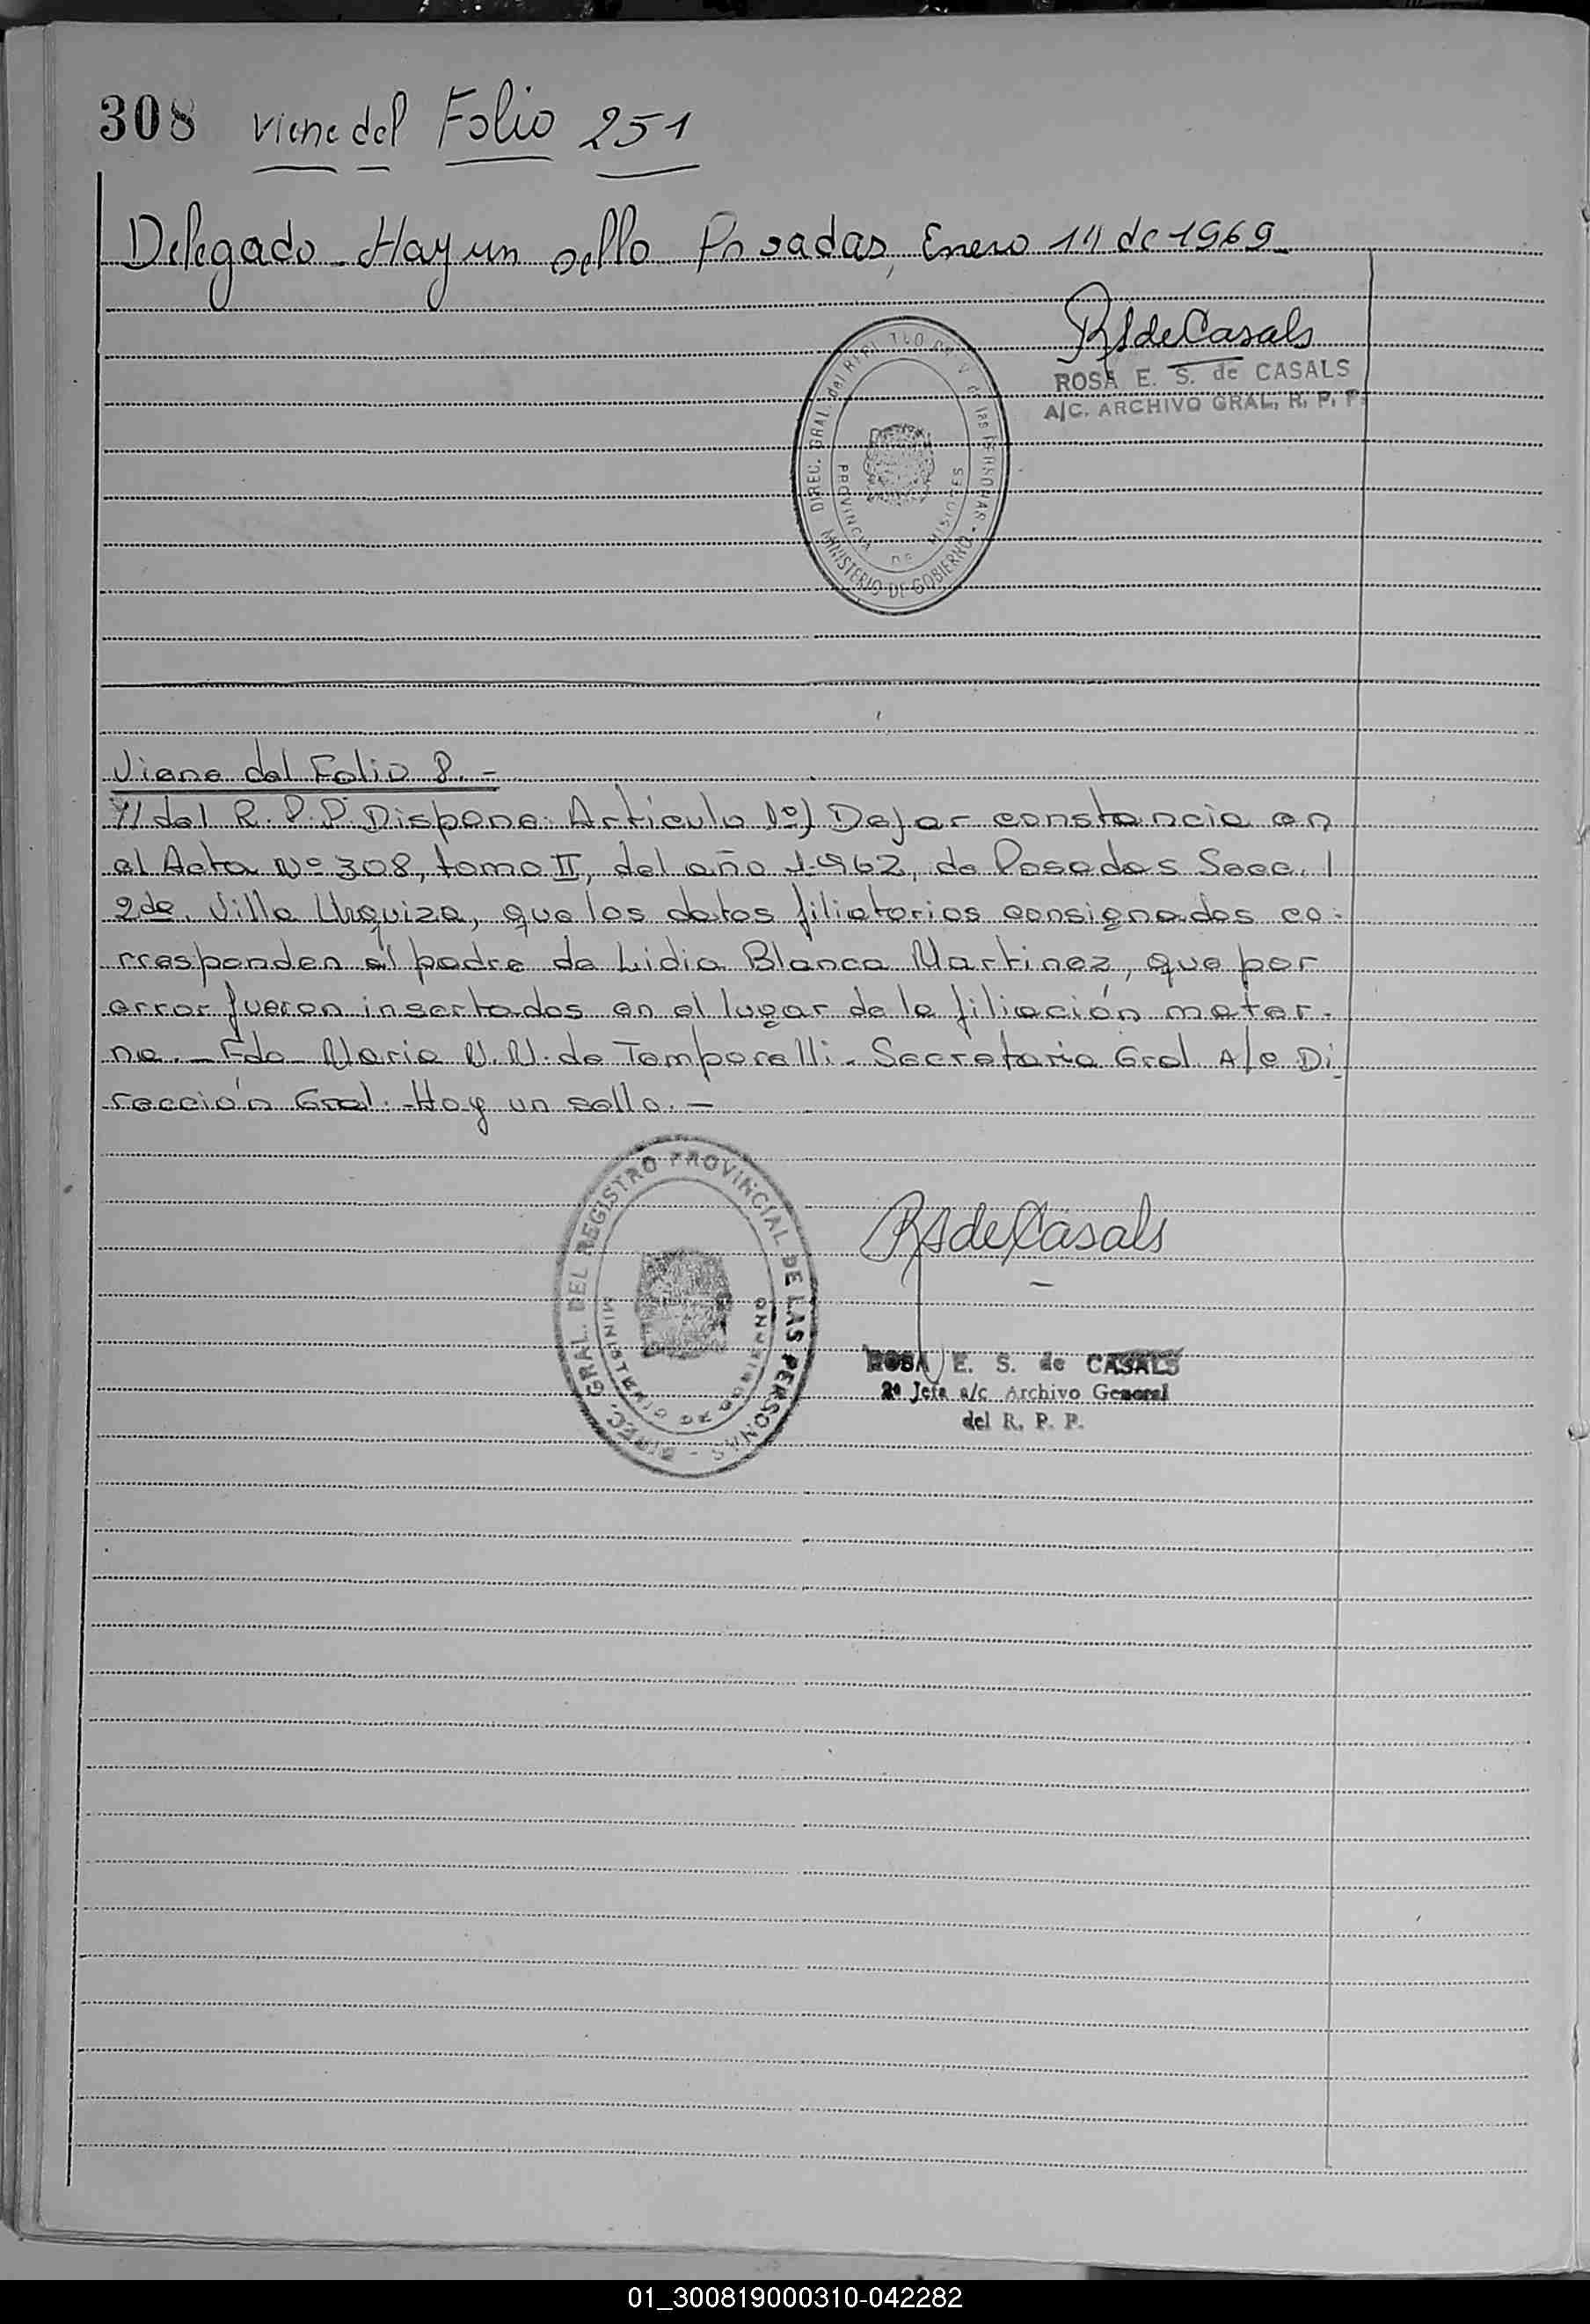 308 viene del Folio 251
Delegado - Hay un sello Posadas, Enero 14 de 1969
RSdeCasals
ROSA E. S. de CASALS
A/C. ARCHIVO GRAL. R. P. P.
DIREC. GRAL. del de las PERSONAS - MINISTERIO DE GOBIERNO
PROVINCIA DE MISIONES
Viene del Folio 8. -
// del R.P.P. Dispone: Artículo 1º) Dejar constancia en
el Acta Nº 308, tomo II, del año 1.962, de Posadas Secc.
2da. Villa Urquiza, que los datos filiatorios consignados co-
rresponden al padre de Lidia Blanca Martinez, que por
error fueron insertados en el lugar de la filiación mater-
na. - Fdo Maria N. N. de Temporelli - Secretaria Gral A/c Di-
rección Gral. - Hay un sello. -
DIREC. GRAL. DEL REGISTRO PROVINCIAL DE LAS PERSONAS -
MINISTERIO DE GOBIERNO
RSdeCasals
ROSA E. S. de CASALS
2º Jefe a/c Archivo General
del R. P. P.
01_300819000310-042282